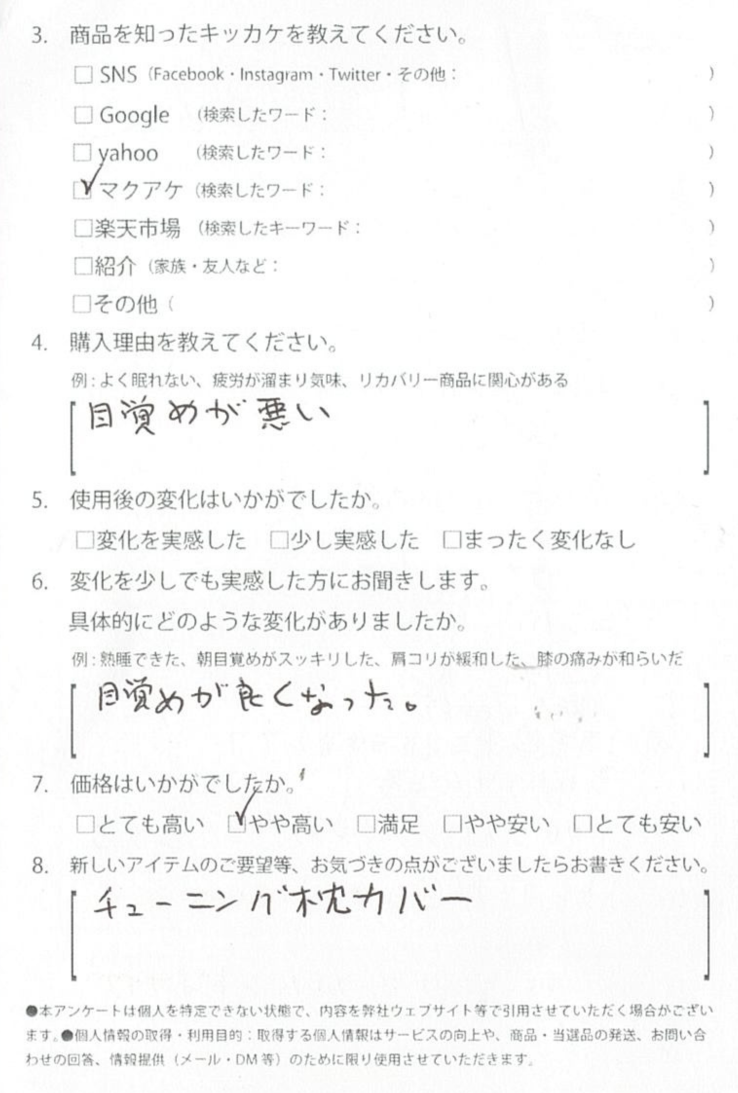 3. 商品を知ったキッカケを教えてください。
□ SNS（Facebook・Instagram・Twitter・その他： ）
□ Google （検索したワード： ）
□ yahoo （検索したワード： ）
☑ マクアケ（検索したワード： ）
□楽天市場 （検索したキーワード： ）
□紹介（家族・友人など： ）
□その他（ ）
4. 購入理由を教えてください。
例：よく眠れない、疲労が溜まり気味、リカバリー商品に関心がある
目覚めが悪い
5. 使用後の変化はいかがでしたか。
□変化を実感した □少し実感した □まったく変化なし
6. 変化を少しでも実感した方にお聞きします。
具体的にどのような変化がありましたか。
例：熟睡できた、朝目覚めがスッキリした、肩コリが緩和した、膝の痛みが和らいだ
目覚めが良くなった。
7. 価格はいかがでしたか。
□とても高い ☑やや高い □満足 □やや安い □とても安い
8. 新しいアイテムのご要望等、お気づきの点がございましたらお書きください。
チューニング枕カバー
●本アンケートは個人を特定できない状態で、内容を弊社ウェブサイト等で引用させていただく場合がござい
ます。●個人情報の取得・利用目的：取得する個人情報はサービスの向上や、商品・当選品の発送、お問い合
わせの回答、情報提供（メール・DM 等）のために限り使用させていただきます。